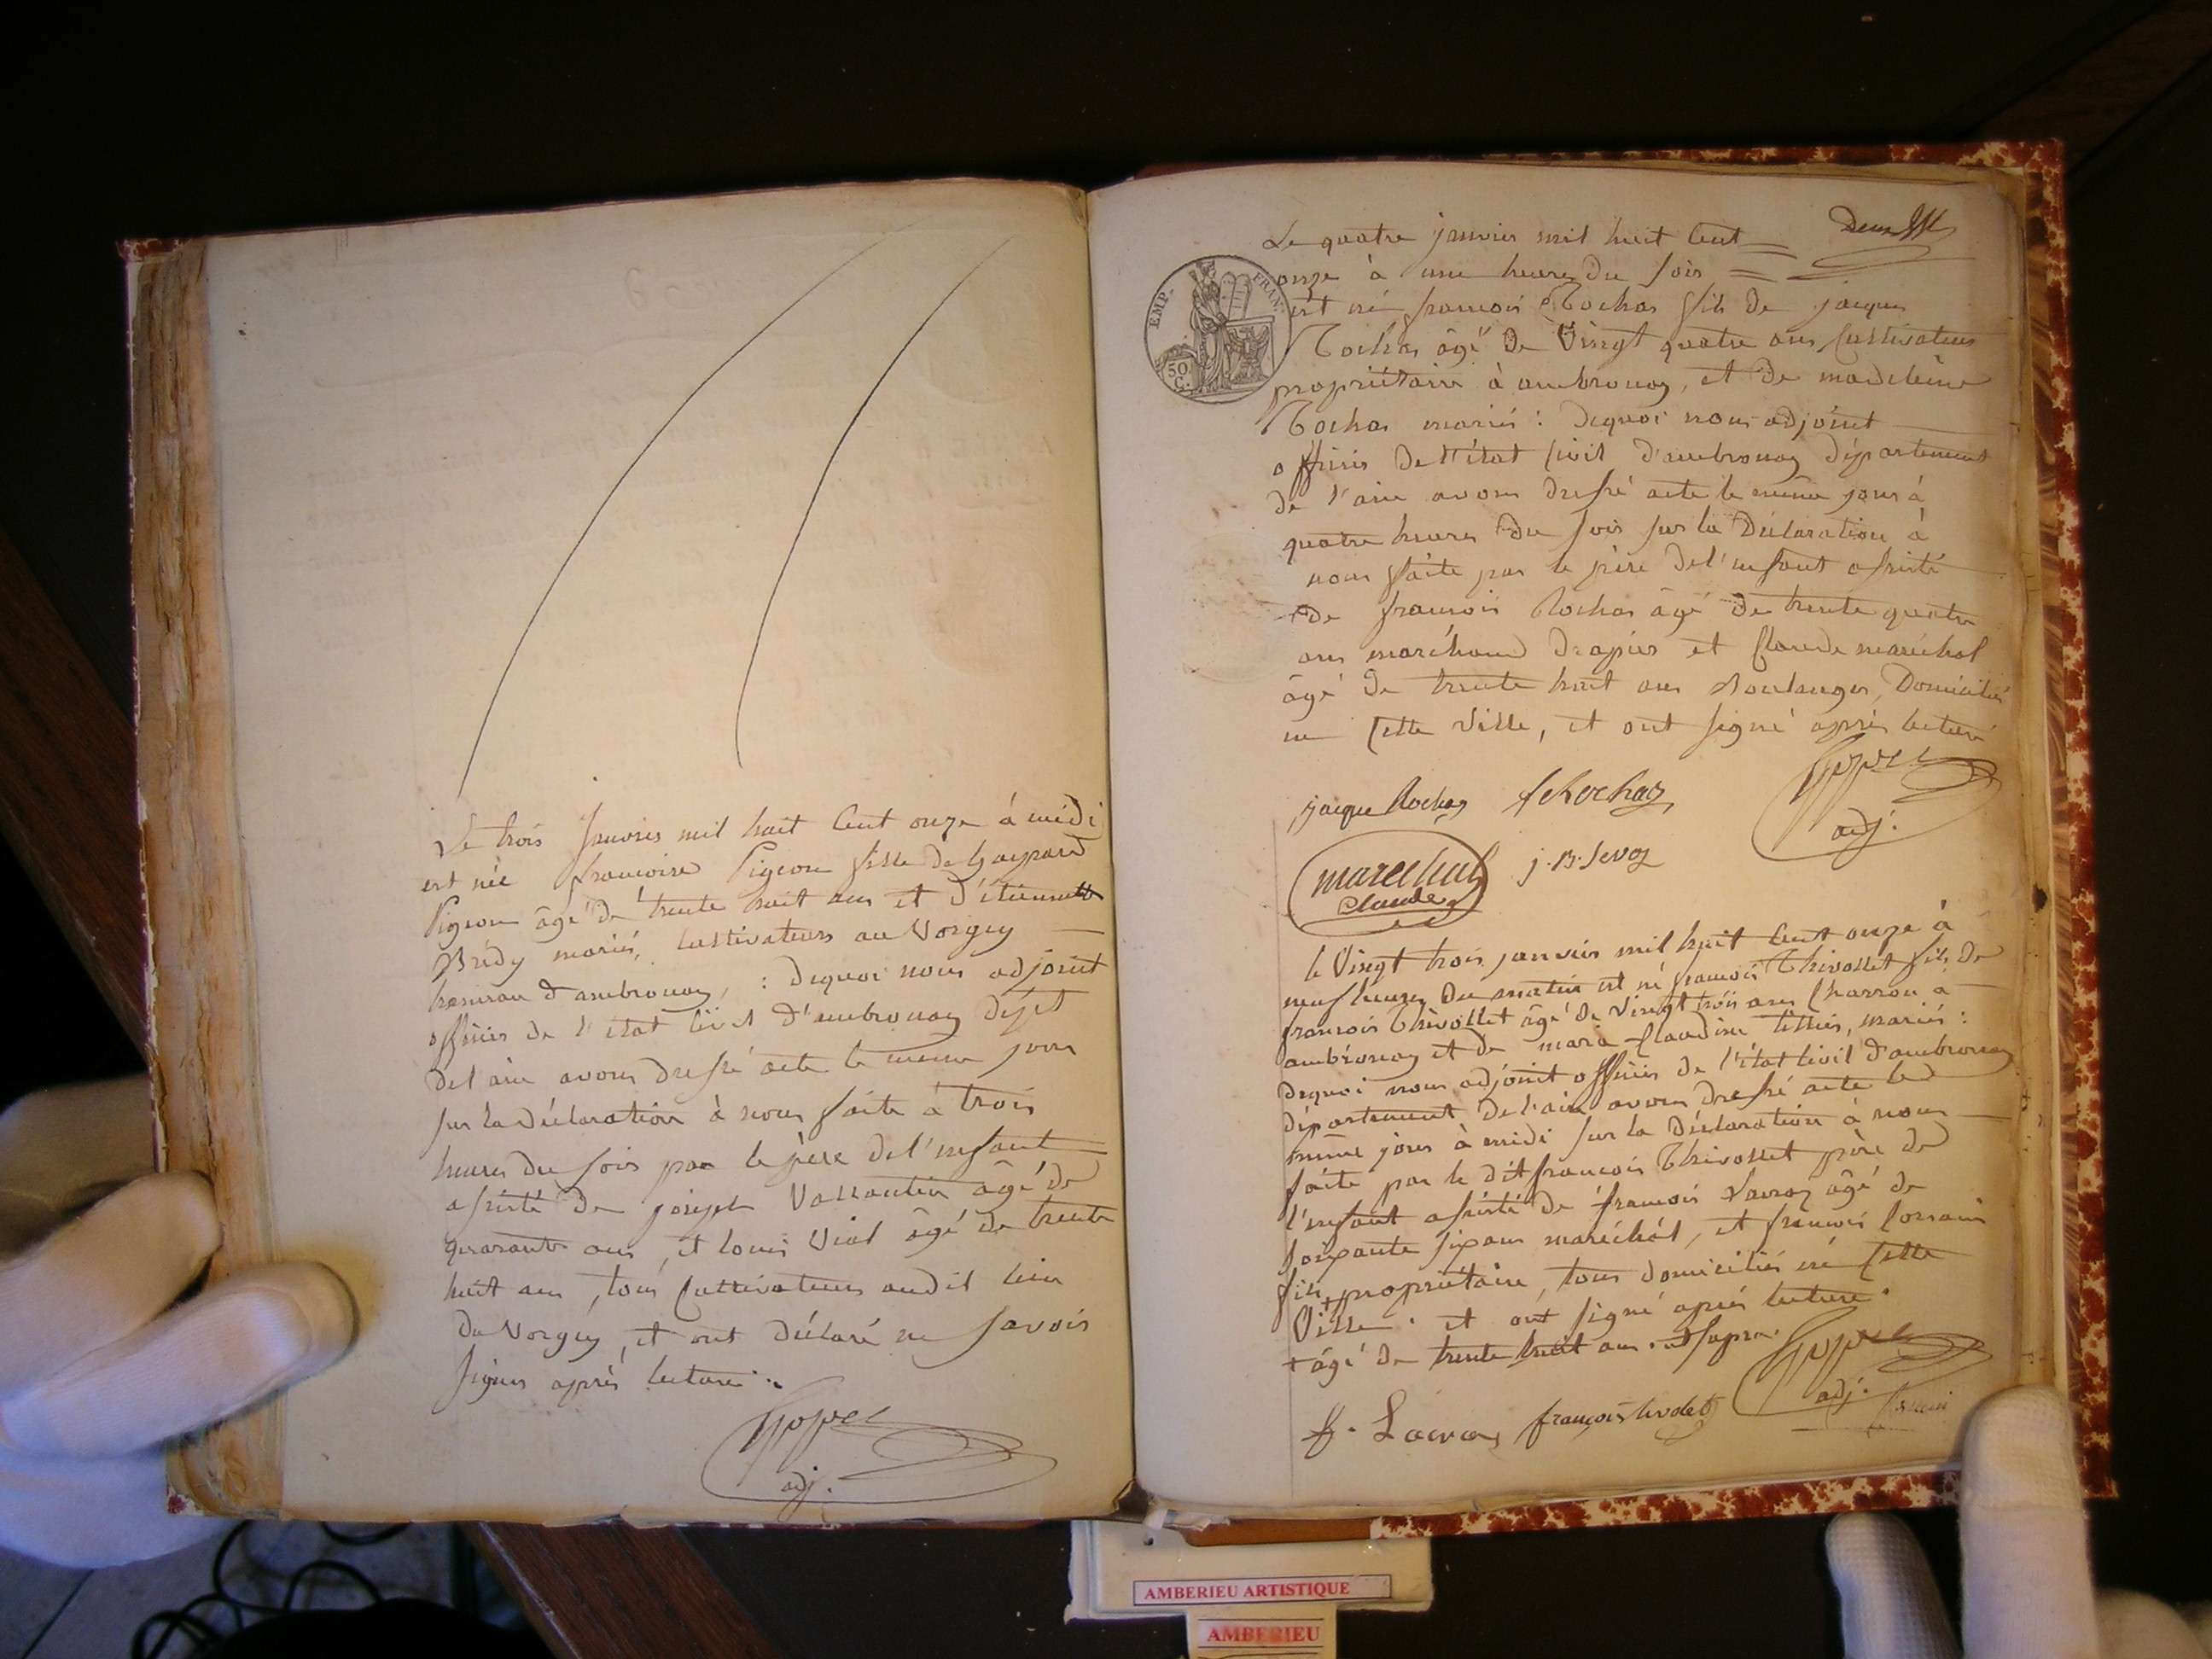 Le trois janvier mil huit Cent onze à midi
est née françoise Pigeon fille de Gaspard
Pigeon âgé de trente huit ans et d'étiennette
Brédy mariés, Cultivateurs au Vorgey
hameau d'ambronay, : dequoi nous adjoint
officier de l'état Civil d'ambronay dépt
de l'ain avons dressé acte le même jour
sur la déclaration à nous faite à trois
heures du soir par le père de l'enfant
assisté de joseph Vallantin âgé de
quarante ans, et louis Vial âgé de trente
huit ans, tous Cultivateurs audit lieu
du Vorgey, et ont déclaré ne savoir
signer après lecture.
adj.
Le quatre janvier mil huit Cent
Deux
onze à une heure du soir
EMP. FRAN.
50 C.
est né françois Rochas fils de jacques
Rochas âgé de Vingt quatre ans Cultivateur
propriétaire à ambronay, et de madeleine
Rochas mariés : dequoi nous adjoint
officier de l'état Civil d'ambronay département
de l'ain avons dressé acte le même jour à
quatre heures du soir sur la Déclaration à
nous faite par le père de l'enfant assisté
de françois Rochas âgé de trente quatre
ans marchand drapier et Claude maréchal
âgé de trente huit ans Boulanger, Domiciliés
en Cette Ville, et ont signé après lecture
jacque Rochas fs Rochas
adj.
marechal j. B. Sevoz
Claude
le Vingt trois janvier mil huit Cent onze à
neuf heures du matin est né françois Thivollet fils de
françois Thivollet âgé de Vingt trois ans Charron à
ambronay et de marie Claudine tissier, mariés :
dequoi nous adjoint officier de l'état Civil d'ambronay
département de l'ain avons dressé acte le
même jour à midi sur la Déclaration à nous
faite par le dit françois Thivollet père de
l'enfant assisté de françois Lavraz âgé de
soixante six ans maréchal, et françois lorrain
fils + propriétaire, tous domiciliés en Cette
Ville. et ont signé après lecture.
+ âgé de trente huit ans. ut supra.
adj.
f. Lavraz françois
AMBERIEU ARTISTIQUE
AMBERIEU